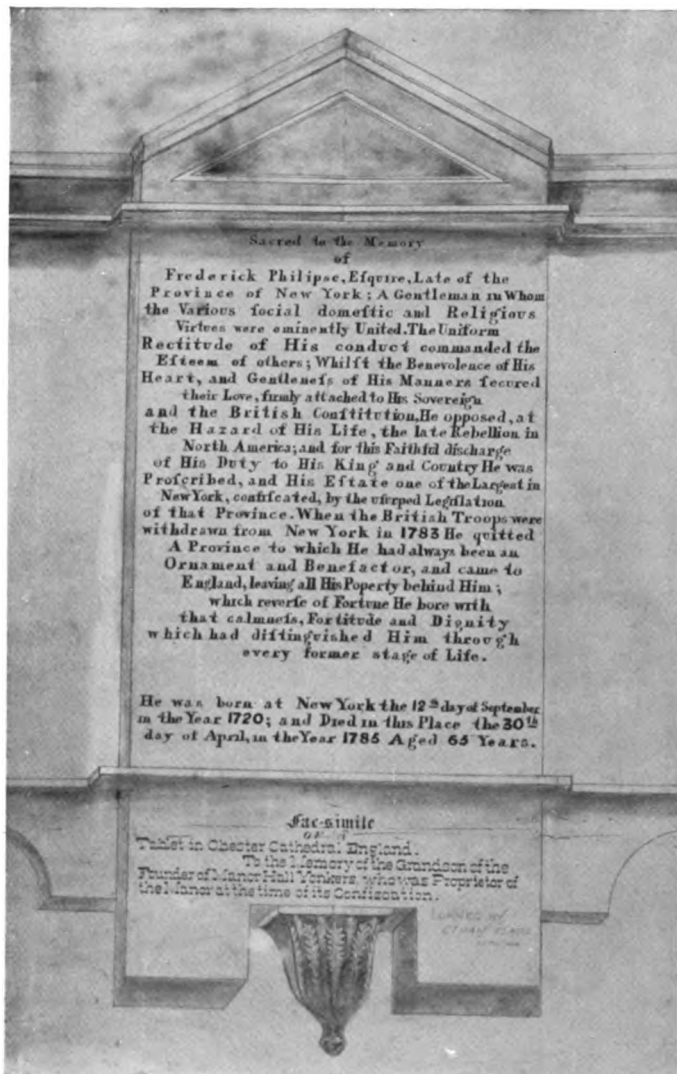 Sacred to the Memory
of
Frederick Philipse, Eſquire, Late of the
Province of New York; A Gentleman in Whom
the Various ſocial domeſtic and Religious
Virtues were eminently United. The Uniform
Rectitude of His conduct commanded the
Eſteem of others; Whilſt the Benevolence of His
Heart, and Gentleneſs of His Manners ſecured
their Love, firmly attached to His Sovereign
and the British Conſtitution, He opposed, at
the Hazard of His Life, the late Rebellion in
North America; and for this Faithful discharge
of His Duty to His King and Country He was
Proſcribed, and His Eſtate one of the Largest in
New York, confiſcated, by the uſurped Legiſlation
of that Province. When the British Troops were
withdrawn from New York in 1783 He quitted
A Province to which He had always been an
Ornament and Benefactor, and came to
England, leaving all His Poperty behind Him;
which reverſe of Fortune He bore with
that calmneſs, Fortitude and Dignity
which had diſtinguished Him through
every former stage of Life.
He was born at New York the 12th day of September
in the Year 1720; and Died in this Place the 30th
day of April, in the Year 1785 Aged 65 Years.
Fac-simile
OF A
Tablet in Chester Cathedral England.
To the Memory of the Grandson of the
Founder of Manor Hall Yonkers, who was Proprietor of
the Manor at the time of its Confiscation.
LOANED BY